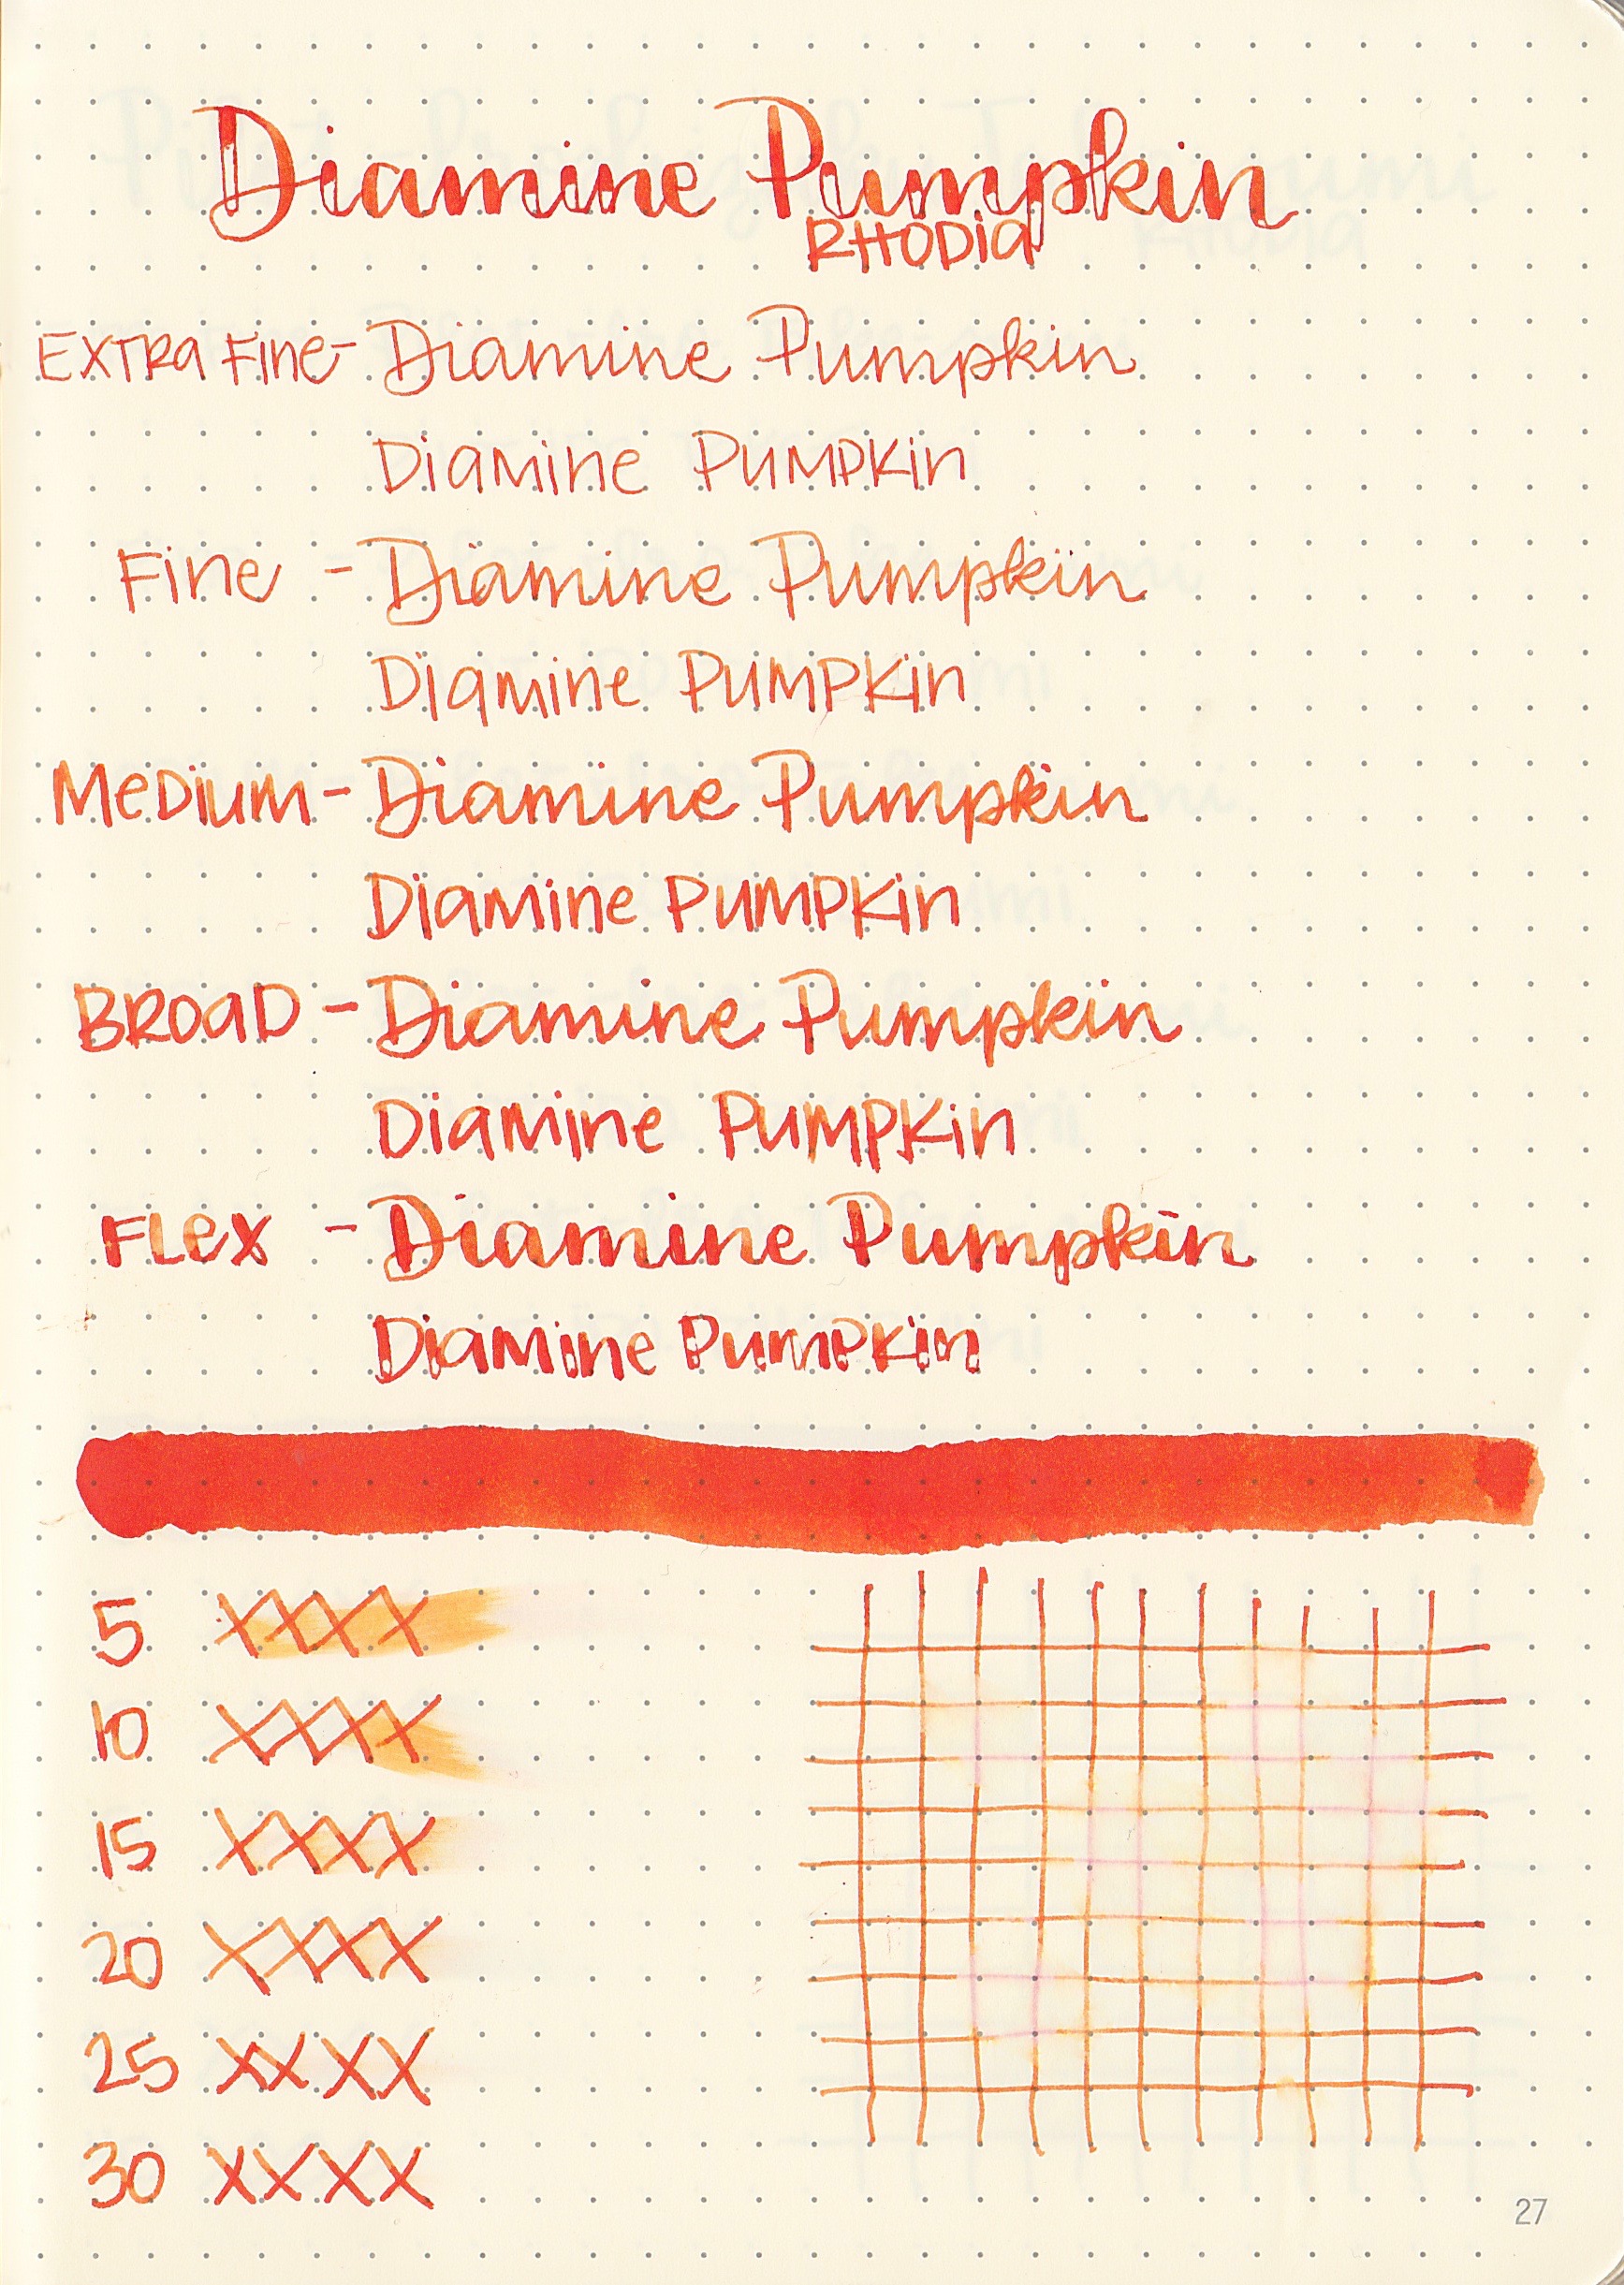 Diamine Pumpkin
RHODIA
EXTRA FINE - Diamine Pumpkin
Diamine Pumpkin
Fine - Diamine Pumpkin
Diamine Pumpkin
Medium - Diamine Pumpkin
Diamine Pumpkin
BROAD - Diamine Pumpkin
Diamine Pumpkin
FLex - Diamine Pumpkin
Diamine Pumpkin
5 XXXX
10 XXXX
15 XXXX
20 XXXX
25 XXXX
30 XXXX
27